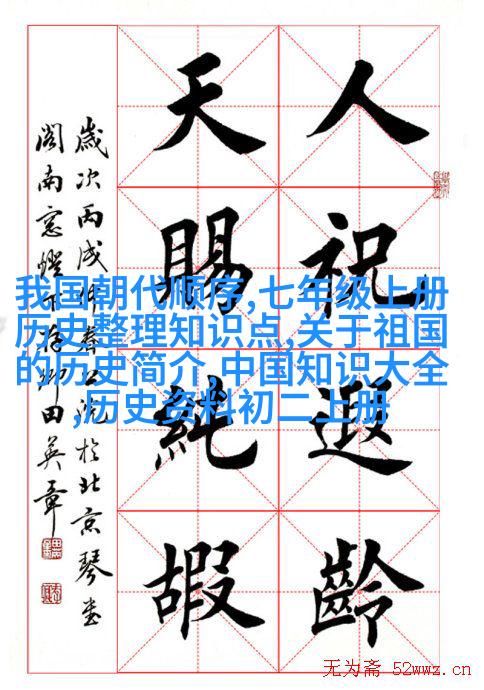 人祝遐齡
天賜純嘏
歲次丙戌 於北京琴堂
閣南窓燈下 田英章
我国朝代顺序,七年级上册
历史整理知识点,关于祖国
的历史简介,中国知识大全
,历史资料初二上册
无为斋 52wwz.cn